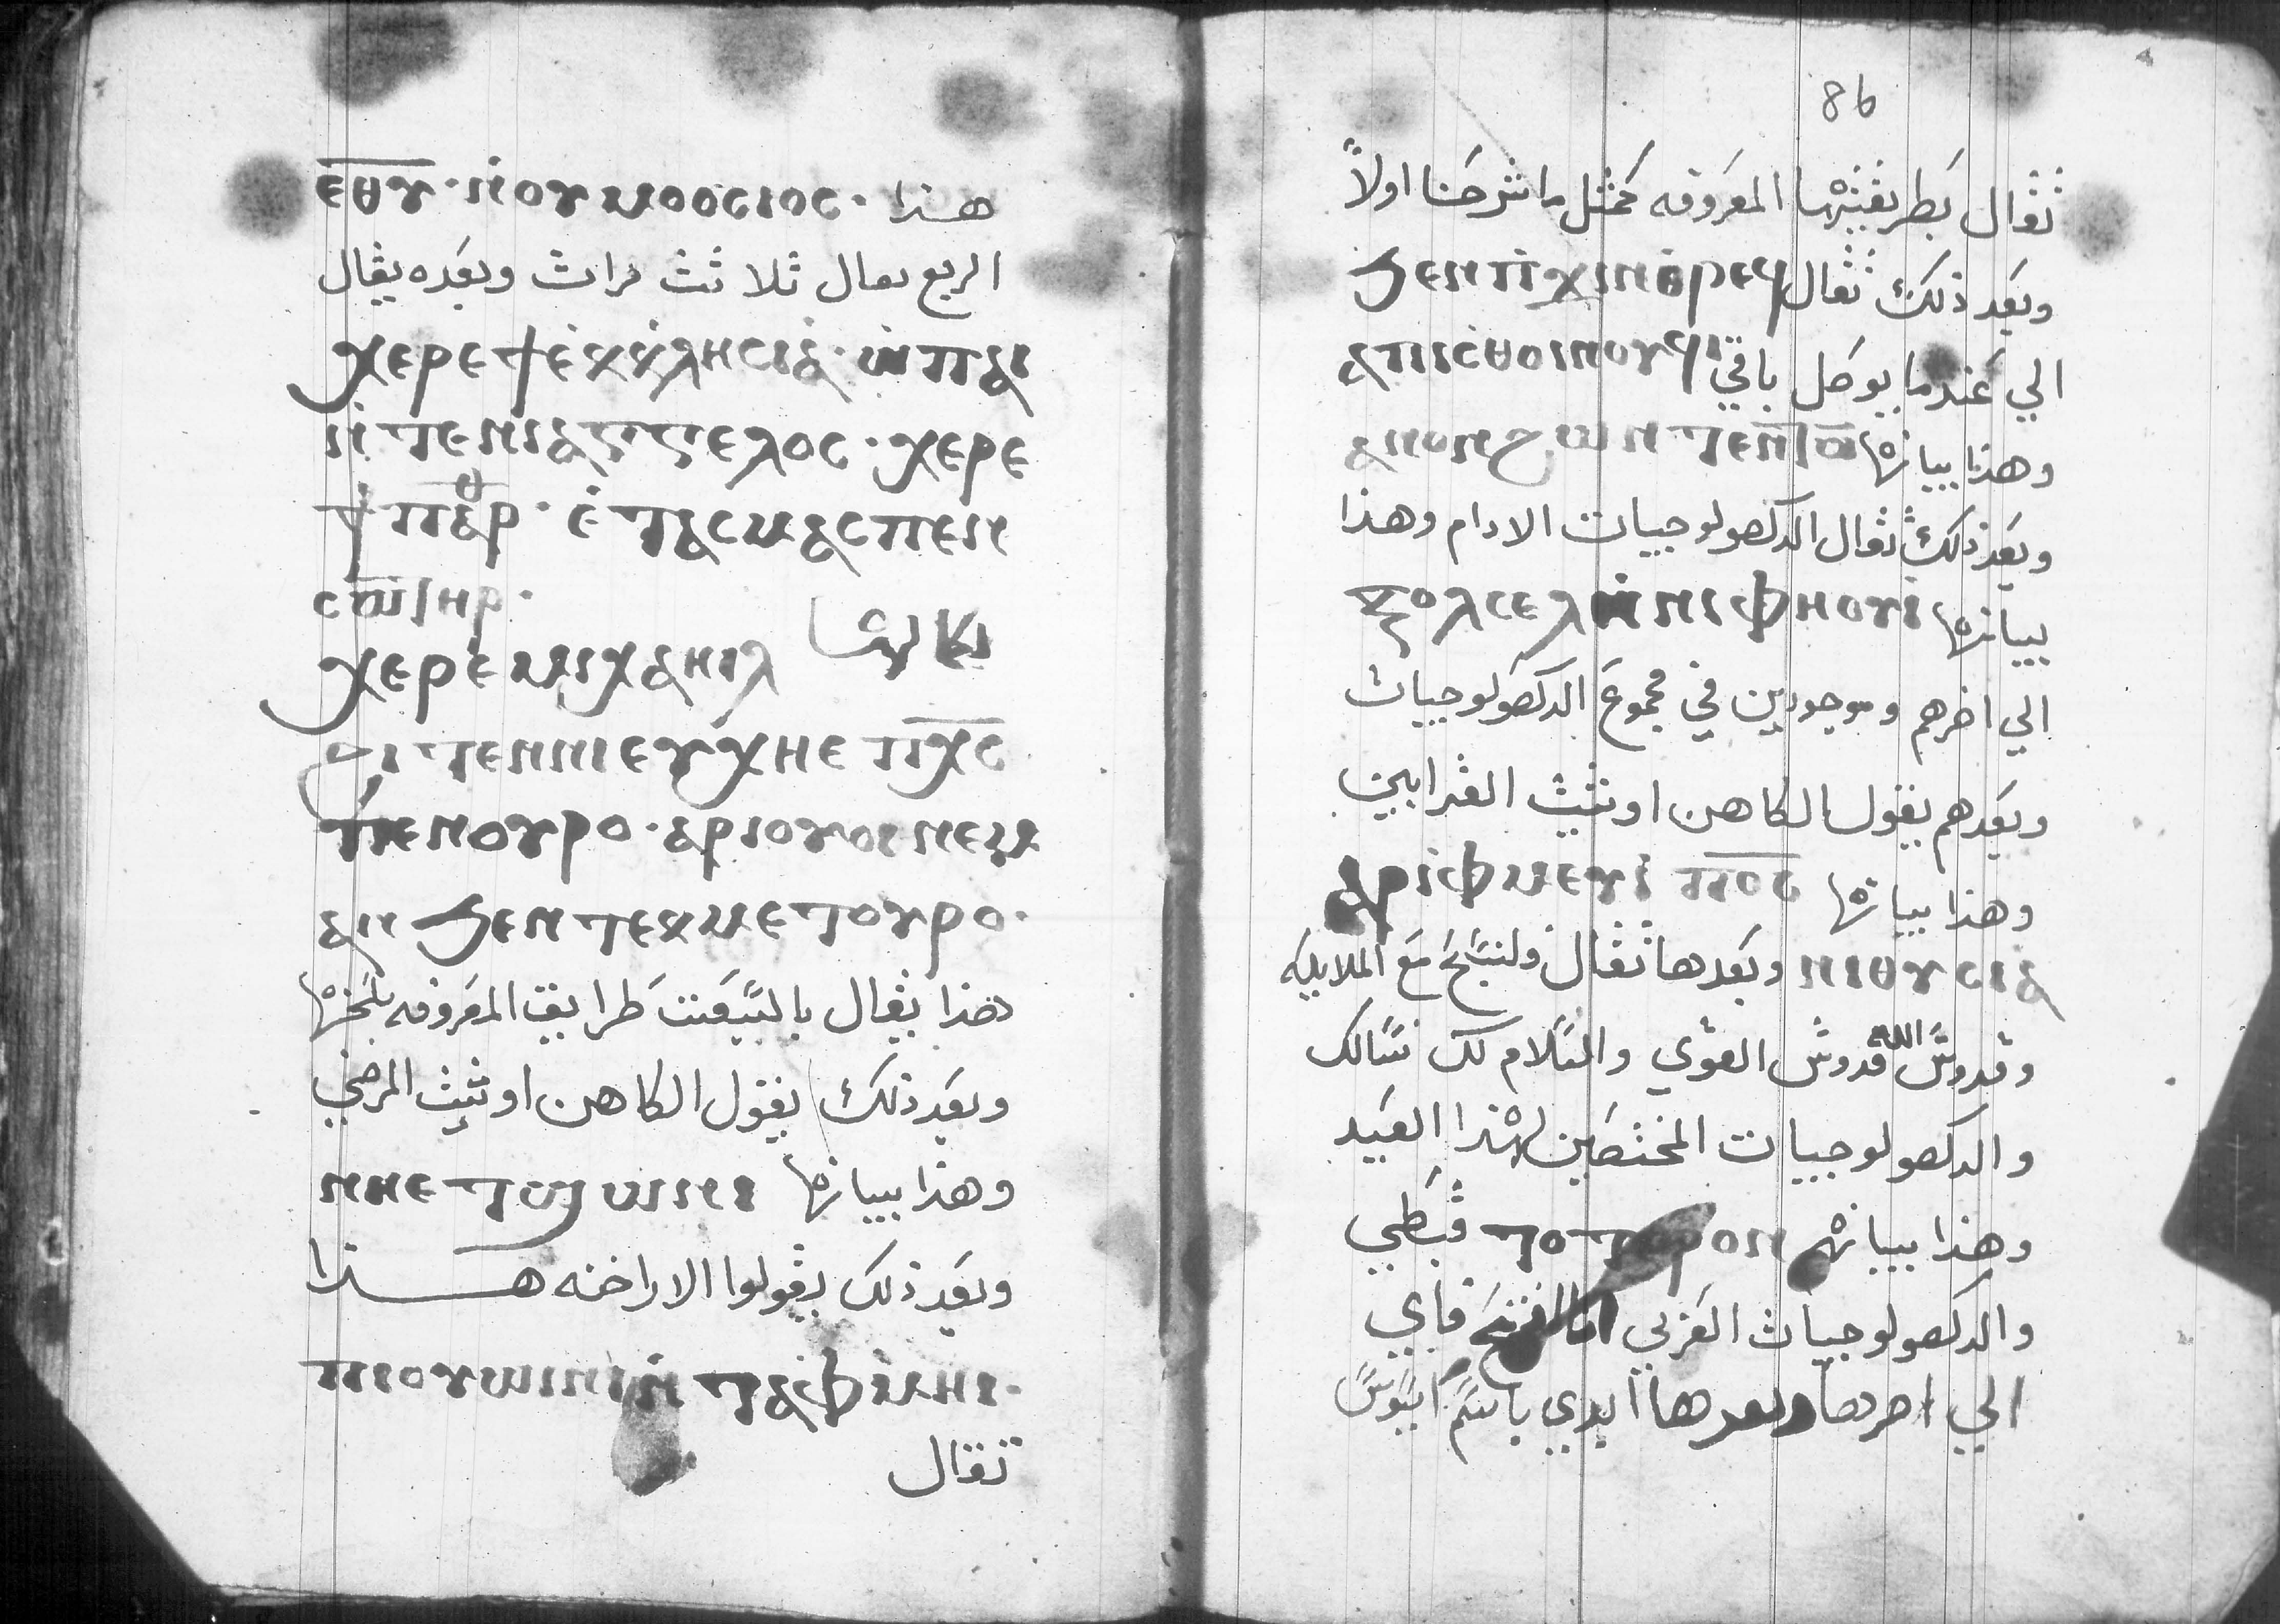 86
ⲉⲑⲩ · ⲛ̀ⲟⲩⲙⲟⲟⲥⲓⲟⲥ · هذا
الربع يقال ثلاثت مرات وبعده يقال
ⲭⲉⲣⲉ ϯⲉⲕⲕⲗⲏⲥⲓⲁ · ⲡ̀ⲏⲓ
ⲛ̀ⲧⲉⲛⲓⲁⲅⲅⲉⲗⲟⲥ · ⲭⲉⲣⲉ
ϯⲡⲁⲣⲑ · ⲉ̀ⲧⲁⲥⲙⲁⲥⲡⲉⲛ
ⲥⲱⲧⲏⲣ ·
ⲭⲉⲣⲉ ⲙⲓⲭⲁⲏⲗ
ϩⲓⲧⲉⲛⲛⲓⲉⲩⲭⲏⲉ ⲡⲭⲥ
ⲡⲉⲛⲟⲩⲣⲟ · ⲁⲣⲓⲟⲩⲟⲓ ⲛⲉⲙ
ⲁⲛ ϧⲉⲛ ⲧⲉⲕⲙⲉⲧⲟⲩⲣⲟ ·
هذا يقال بالسبعت طرايق المعروفه بلحنها
وبعد ذلك يقول الكاهن اوشيت المرضي
وهذا بيانها ⲛⲏⲉⲧϣⲱⲛⲓ
وبعد ذلك يقولوا الاراخنه هذا
ⲡⲓⲟⲩⲱⲓⲛⲓ ⲛ̀ⲧⲁⲫⲙⲏⲓ ·
تقال
تقال بطريقتها المعروفه كمثل ما شرحنا اولاً
وبعد ذلك تقال ϧⲉⲛ ⲡϫⲓⲛⲑⲣⲉϥ
الي عندما يوصل باقي ⲁⲡⲓⲥⲑⲟⲓⲛⲟⲩϥⲓ
وهذا بيانها ⲁⲛⲟⲛ ϩⲱⲛ ⲧⲉⲛⲧⲱ
وبعد ذلك تقال الدكصولوجيات الادام وهذا
بيانها ⲍⲟⲗⲥⲉⲗ ⲛ̀ⲛⲓⲫⲏⲟⲩⲓ
الي اخرهم وموجودين في مجموع الدكصولوجيات
وبعدهم يقول الكاهن اوشيت القرابين
وهذا بيانها ⲁⲣⲓⲫⲙⲉⲩⲓ ⲡⲟⲥ
ⲛⲓⲑⲩⲥⲓⲁ وبعدها تقال ولنسبح مع الملايكه
وقدوس الله قدوس القوي والسلام لك نسالك
والدكصولوجيات المختصين لهذا العيد
وهذا بيانهم ⲧⲟⲧⲉ ⲣⲱⲛ قبطي
والدكصولوجيات العربي فاي
الي اخرها وبعدها ابدي باسم ابسوس